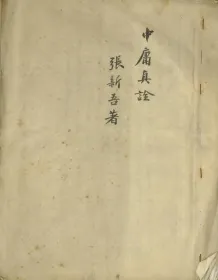 中庸真詮
張新吾著